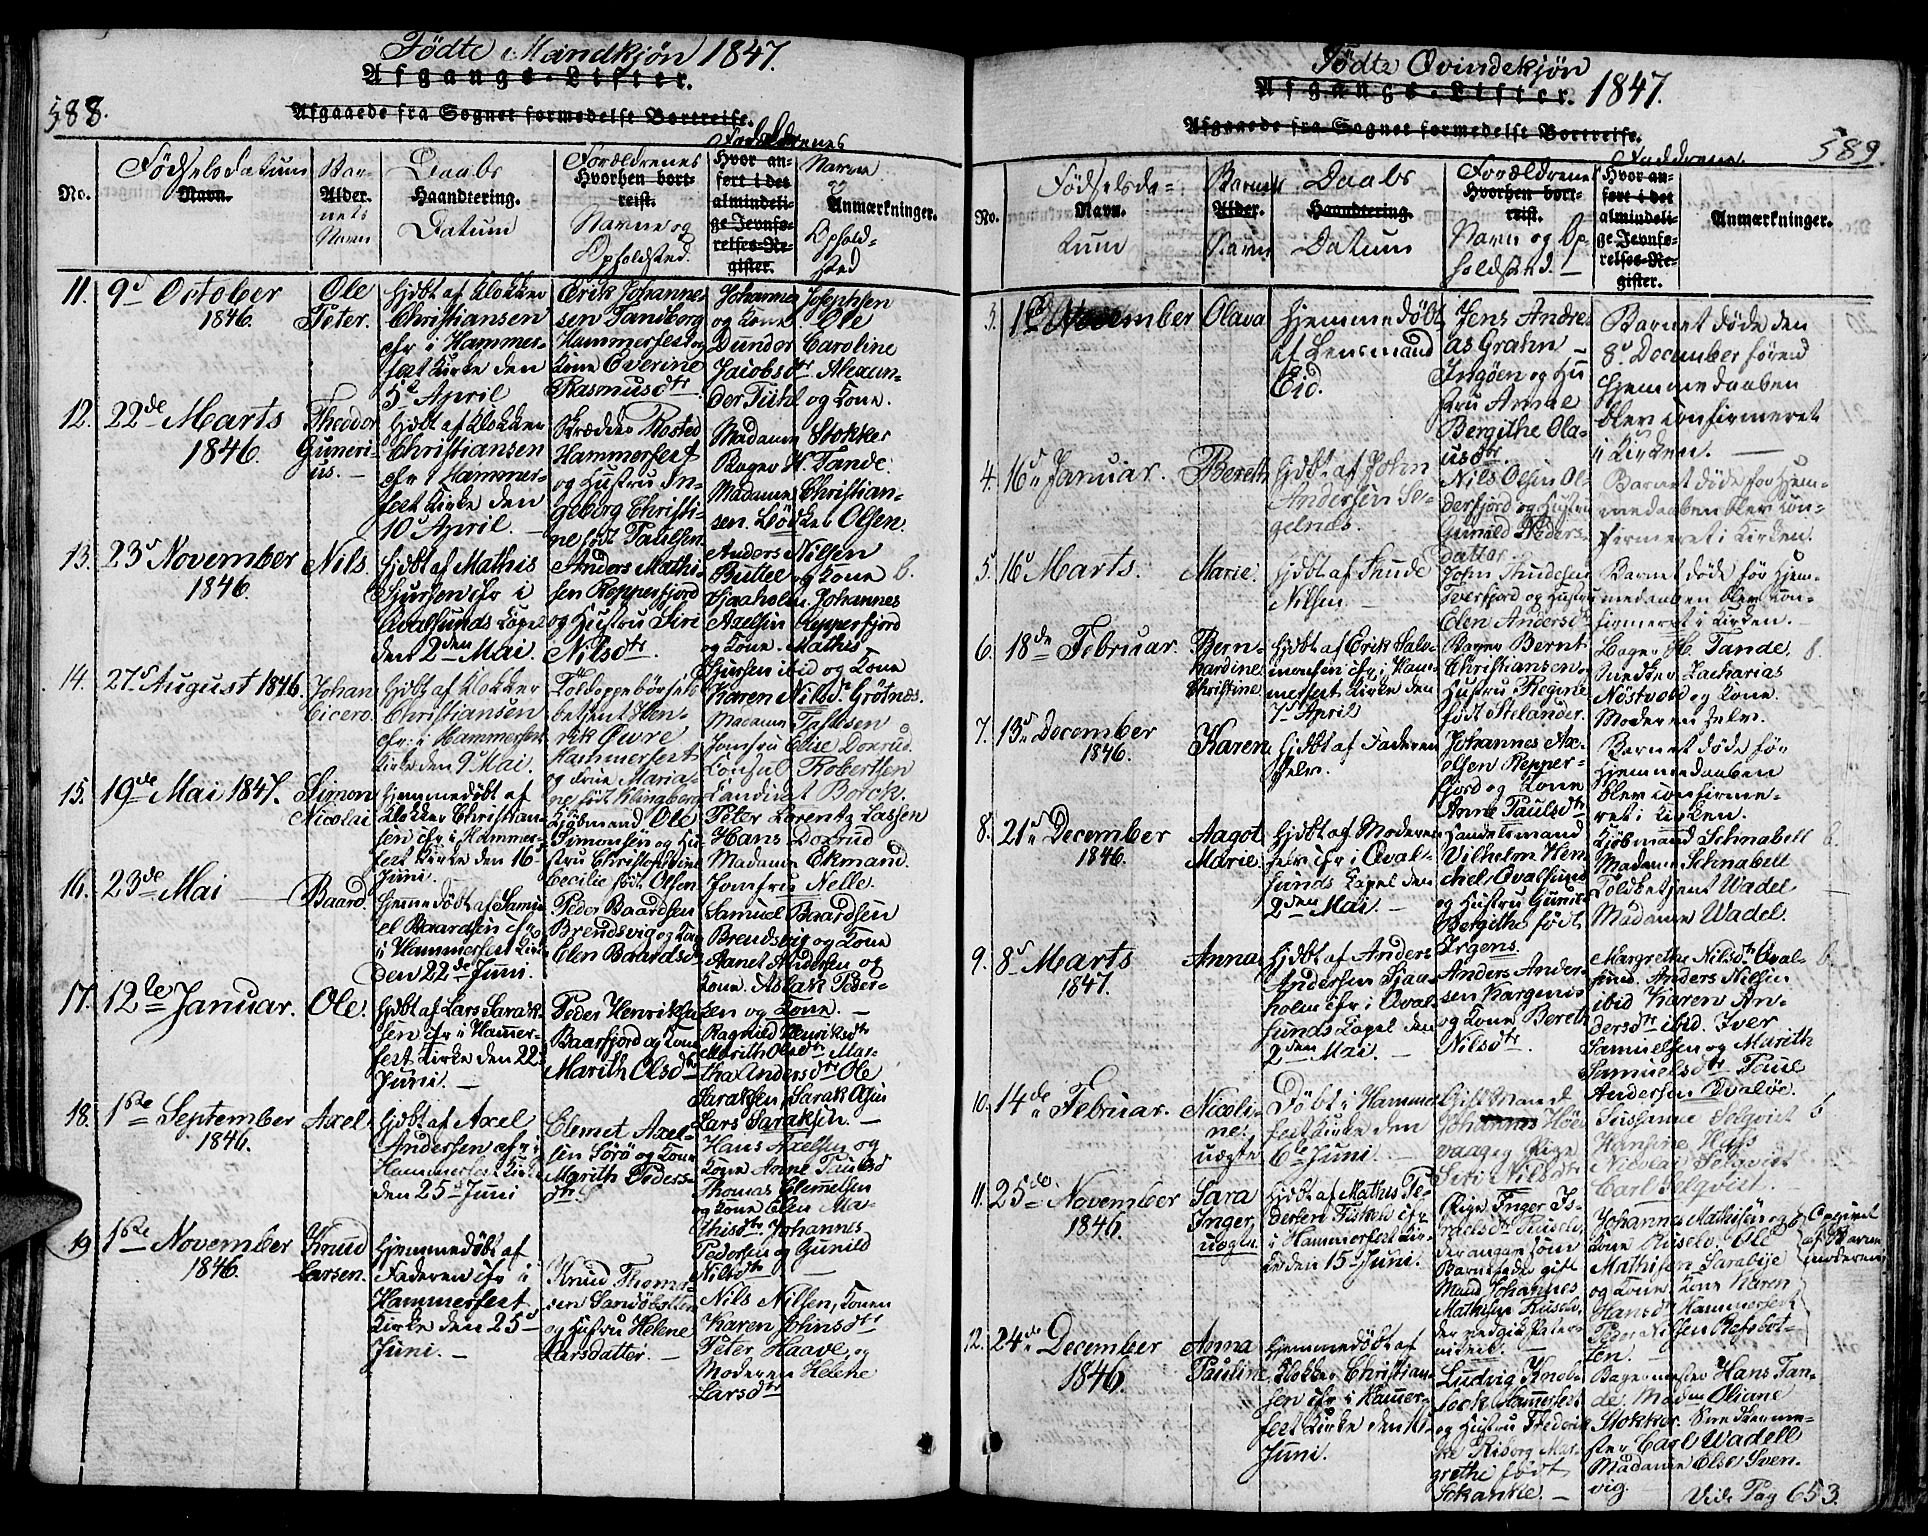 Födte Mandkjøn 1847.
Afgangs-Lister.
588.
Afgaaede fra Sognet formedelst Bortreise.
No.
Fødselsdatum
Navn.
Barnets Navn
Alder.
Daabs Datum
Haandtering.
Forældrenes Navne og Opholdsted.
Hvorhen bortreist.
Hvor anført i det almindelige Jevnførelses-Register.
Navne og Opholdsted
Anmærkninger.
11. 9d October 1846.
Ole Peter.
Hjdbt af Klokker
Christiansen
cfr i Hammer-
fest Kirke den
5t April
Erik Johanne-
sen Tanberg
Hammerfest og
Kone Everine
Rasmusdtr
Johannes Josephsen
og Kone. Ole
Dundor Caroline
Jacobsdtr. Alexan-
der Fuhl og Kone.
12. 22de Marts 1846.
Theodor Guneri-
us.
Hjdbt af Klokker
Christiansen
cfr i Hammer-
fest Kirke den
10d April.
Skrædder Rosted
Hammerfest
og Hustru In-
geborg Christi-
ne født Paulsen
Madame Stokker
Bager H. Tande.
Madame Christian-
sen. Lödker Olsen.
13. 23d November 1846.
Nils.
Hjdbt af Mathis
Sjursen cfr i
Qvalsunds Capel
den 2den Mai.
Anders Mathi-
sen Repperfjord
og Hustru Siri
Nilsdtr.
Anders Nilsen
Buttel og Kone
Sjaaholm. Johannes
Axelsen Repperfjord
og Kone. Mathis
Sjursen ibid og Kone
Karen Nilsdr Grötnes.
14. 27d August 1846.
Johan
Cicero.
Hjdbt af Klokker
Christiansen
cfr. i Hammerfest
Kirke den 9d Mai.
Toldoppebörsels
betjent Hen-
rik Øwre
Hammerfest
og Kone Maria-
ne født Klingberg
Madame
Jomfru Elise Doxrud
Consul Robertsen
Candidat Borck.
15. 19de Mai 1847.
Simon
Nicolai
Hjemmedöbt af
Klokker Christian-
sen cfr i Hammer-
fest Kirke den 16d
Juni.
Kjöbmand Ole
Simonsen og Hu-
stru Christophine
Cecilie født Olsen
Peter Lorentz Lassen
Hans Doxrud
Madame Ekmand.
Jomfru Nelle.
16. 23de Mai
Baard.
Hjemmedöbt af Samu-
el Baardsen cfr
i Hammerfest Kirke
den 22de Juni.
Peder Baardsen
Brendsvig og Kone
Elen Baardsdr
Samuel Baardsen
Brendsvig og Kone
Aanet Andersen og
Kone. Aslak Peder-
sen og Kone.
17. 12te Januar.
Ole.
Hjdbt af Lars Sarak-
sen cfr i Hammer-
fest Kirke den 22d
Juni.
Peder Henriksen
Baarfjord og Kone
Marith Olsdtr
Ragnild Henriksdtr
Marith Olsdtr Mar-
tha Andersdtr Ole
Saraksen Sarak Olsen
Lars Saraksen.
18. 1ste September 1846.
Axel.
Hjdbt af Axel
Andersen cfr i
Hammerfest Kirke
den 25d Juni
Clemet Axel-
sen Sörö og Kone
Marith Peders-
dtr
Hans Axelsen og
Kone Anne Paulsdr
Thomas Clemetsen
og Kone Elen Ma-
thisdtr. Johannes
Pedersen og Gunild
Nilsdtr
19. 1ste November 1846.
Knud
Larsen.
Hjemmedöbt af
Faderen cfr i
Hammerfest
Kirke den 25d
Juni.
Knud Thom-
sen Sandöbotten
og Hustru Helene
Larsdatter.
Nils Nilsen, Konen
Karen Johnsdtr
Peter Haave, og
Moderen Helene
Larsdtr
Födte Qvindekjön
Afgangs-Lister. 1847.
Afgaaede fra Sognet formedelst Bortreise.
589.
No.
Fødselsda-
Navn.
tum
Barnets
Alder.
Navn
Daabs
Haandtering.
Datum
Forældrenes
Hvorhen bortreist.
Navn og Op-
holdsted.
Faddrene
Hvor anført i det almindelige Jevnførelses-Register.
Anmærkninger.
3. November
Olava
Hjemmedöbt
af Lensmand
Eid.
Jens Andre-
as Grahn
Ingöen og Hu-
stru Anne
Bergithe Ola-
usdtr
Barnet döde den
8d December foren
Hjemmedaaben
blev confirmeret
i Kirken.
4. 16d Januar.
Bereth
Hjdbt af John
Andersen Se-
gelnæs.
Nils Olsen Ol-
derfjord og Hustru
Gunild Peders-
datter.
Barnet döde for Hjem-
medaaben blev con-
firmeret i Kirken.
5. 16d Marts.
Marie.
Hjdbt af Thude
Nilsen.
John Thudesen
Tverfjord og Hustru
Elen Andersdr
Barnet döde før Hjem-
medaaben blev Con-
firmeret i Kirken.
6. 18de Februar.
Bern-
hardine
Christine
Hjdbt af Erik Salo-
monsen cfr i Ham-
merfest Kirke den
7d April
Bager Bernt
Christiansen og
Hustru Regine
født Stelander.
Bager H. Tande.
Snedker Zacharias
Nöstvold og Kone.
Moderen selv.
7. 13d December 1846.
Karen
Hjdbt af Faderen
selv.
Johannes Ax-
elsen Repper-
fjord og Kone
Anne Paulsdtr
Barnet döde før
Hjemmedaaben
blev confirme-
ret i Kirken.
8. 21d December 1846.
Aagot
Marie.
Hjdbt af Moderen
selv cfr i Qval-
sunds Capel den
2den Mai.
Handelsmand
Vilhelm Hen-
chel Qvalsund
og Hustru Gunild
Bergithe født
Irgens.
Kjöbmand Schnabell
Madame Schnabell
Toldbetjent Wadel
Madame Wadel.
9. 8d Marts 1847.
Anna
Hjdbt af Anders
Andersen Sjaa-
holm cfr i Qval-
sunds Capel den
2den Mai.
Anders Ander-
sen Kargenes
og Kone Bereth
Nilsdtr
Margrethe Nilsdtr Qval-
sund. Anders Nilsen
ibid Karen An-
dersdtr ibid. Iver
Samuelsen og Marith
Samuelsdtr Poul
Andersen Qvalöe.
10. 14de Februar.
Nicoli-
ne.
uægte
Döbt i Hammer-
fest Kirke den
6te Juni
Gift Mand
Johannes Höe-
vaag og Pige
Siri Nilsdtr
Susanne Selqvist
Hansine Hays
Nicolai Selqvist
Carl Selqvist.
11. 25de November 1846.
Sara
Inger.
uægte.
Hjdbt af Mathis Pe-
dersen Fiskelv cfr
i Hammerfest Kir-
ke den 15d Juni.
Pige Inger Is-
raelsdtr Ruselv,
der angav som
Barnefader gift
Mand Johannes
Mathisen Ruselv,
der vedgik Pater-
niteit.
Johannes Mathisen og
Kone Ruselv. Ole
Mathisen Saraböe
og Kone. Kone Karen
Hansdr Hammerfest
Peder Nilsen Refsbot-
ten.
Opgivet
af Barne
moderen
12. 24de December 1846.
Anna
Pauline
Hjemmedöbt af
Klokker Christian-
sen cfr i Hammer-
fest Kirke den 16d
Juni.
Ludvig Knob-
lock Hammerfest
og Hustru Frederik-
ke Riborg Mar-
grethe født
Schanke.
Bagermester Hans Tan-
de. Madm Oliane
Stokker. Snedkerme-
ster Carl Wadell
Madame Olsd Sven-
vig.
Vide Pag 653.